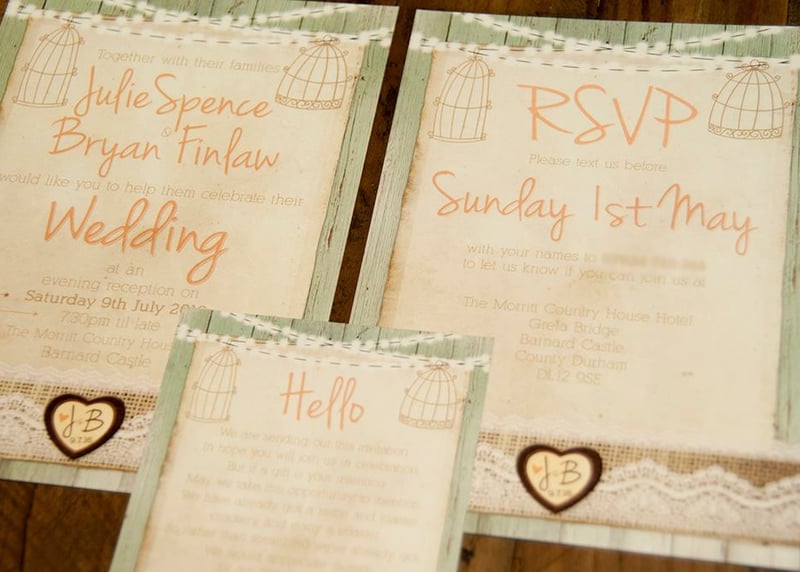 Together with their families
Julie Spence
&
Bryan Finlaw
would like you to help them celebrate their
Wedding
at an
evening reception on
Saturday 9th July
7:30pm til late
The Morritt Country
Barnard Castle
J B
9.7.16
RSVP
Please text us before
Sunday 1st May
with your names to
to let us know if you can join us at
The Morritt Country House Hotel
Greta Bridge,
Barnard Castle,
County Durham
DL12 9SE
J B
9.7.16
Hello
We are sending out this invitation
In hope you will join us in celebration
But if a gift is your intention
May we take this opportunity to mention
We have already got a kettle and toaster